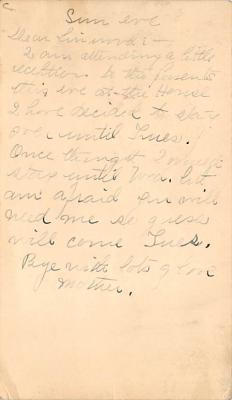 Sun eve
Dear Linwood:-
I am attending a little
reception to the
this eve at the House
I have decided to stay
over until Tues.
Once thought I would
stay until Wed. but
am afraid you will
need me so guess
will come Tues.
Bye with lots of love
Mother.